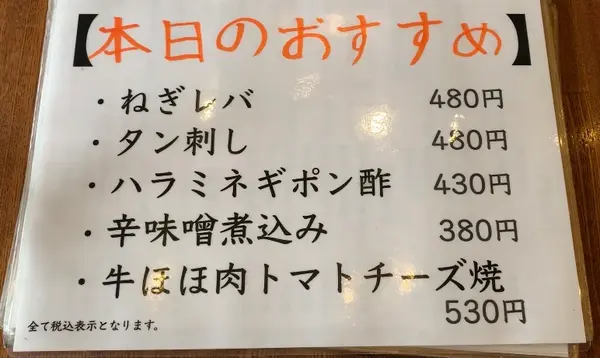 【本日のおすすめ】
・ねぎレバ 480円
・タン刺し 480円
・ハラミネギポン酢 430円
・辛味噌煮込み 380円
・牛ほほ肉トマトチーズ焼
530円
全て税込表示となります。